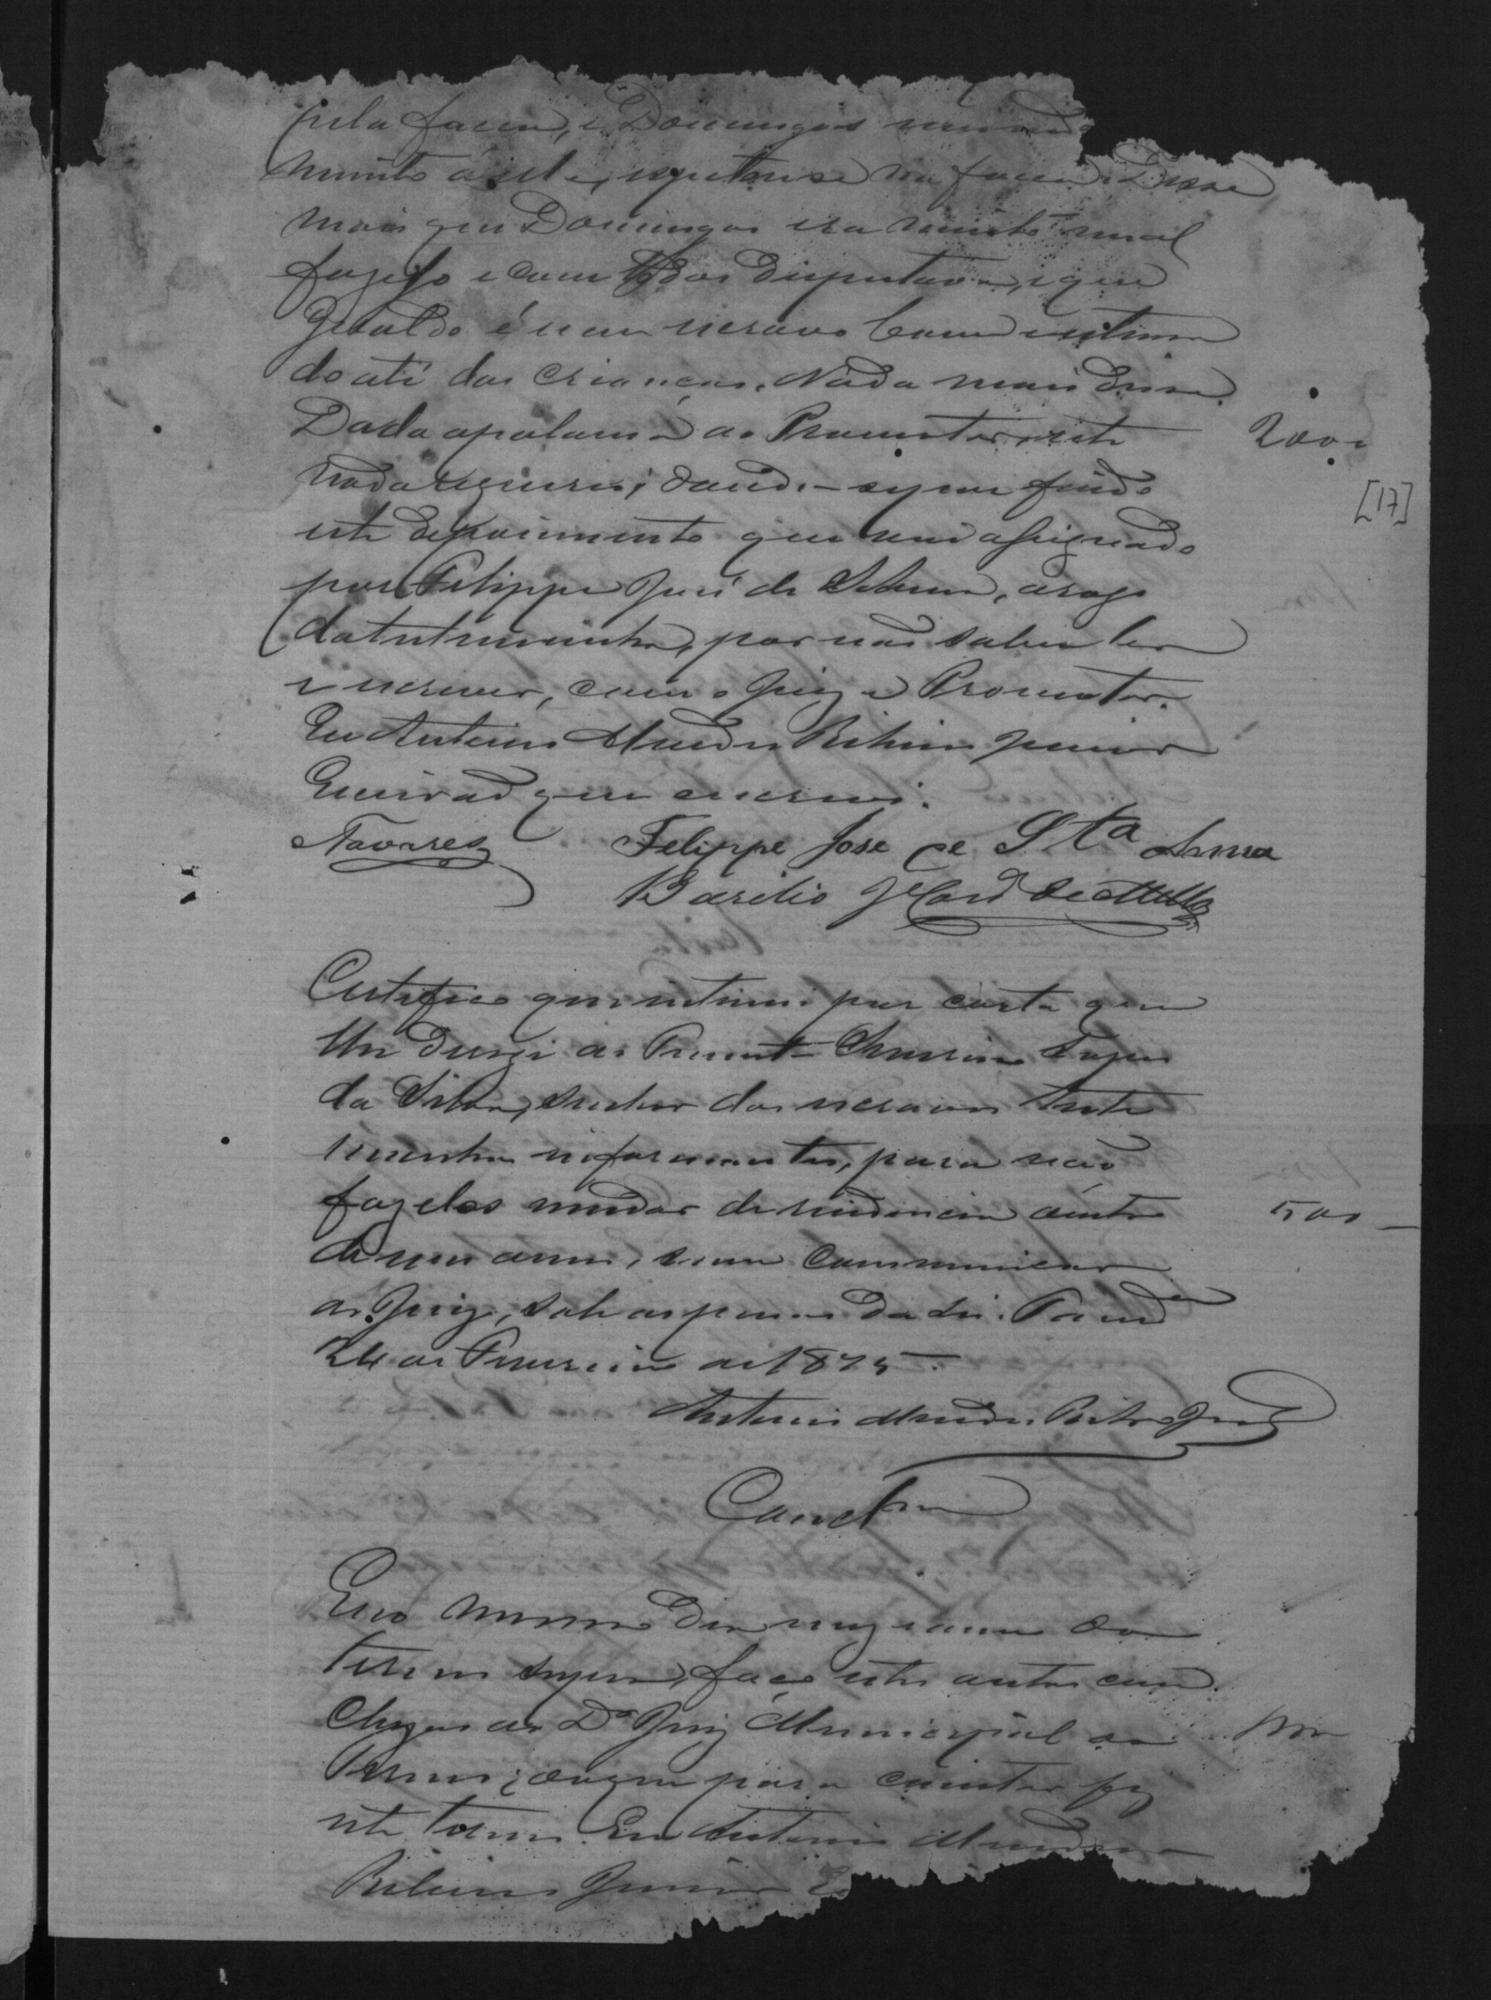 pela faca, e Domingos
muito á elle, na faca. Disse
mais que Domingos era muito mal
fazejo e com todos disputava, e que
Geraldo é um escravo bem estima
do até das crianças. Nada mais disse.
Dada a palavra ao Promotor, este 2000
nada requereu; dando-se por findo
[17]
este depoimento que vai assignado
por Felippe José de Santanna, a rogo
da testemunha, por não saber ler
e escrever, com o Juiz e Promotor.
Eu Antonio Mendes Ribeiro Junior
Escrivão que escrevi.
Tavares Felippe Jose de Sta Anna
Basilio de Mello
Certifico que intimei por carta que
lhe dirigi ao
da Silva, senhor dos escravos teste
munhas informantes, para não
fazel-os mudar de residencia dentro 500
de um anno, sem communicar
ao Juiz, sob as penas da lei.
24 de Fevereiro de 1875.
Antonio Mendes Ribro Junior
Conclsm
E no mesmo dia mez e anno do
termo supra, faço estes autos con
clusos ao Dr Juiz Municipal do
Termo; do que para constar fiz
este termo. Eu Antonio Mendes
Ribeiro Junior